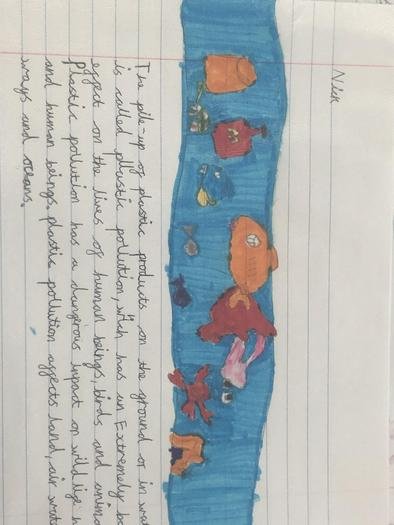 Nick
The pile-up of plastic products on the ground or in wa
is called pllastic pollution, witch has un Extremely ba
effect on the lives of human beings, birds and anima
Plastic pollution has a dangerous inpact on wildlige h
and human beings. plastic pollution affects hand, air wat
ways and oceans.